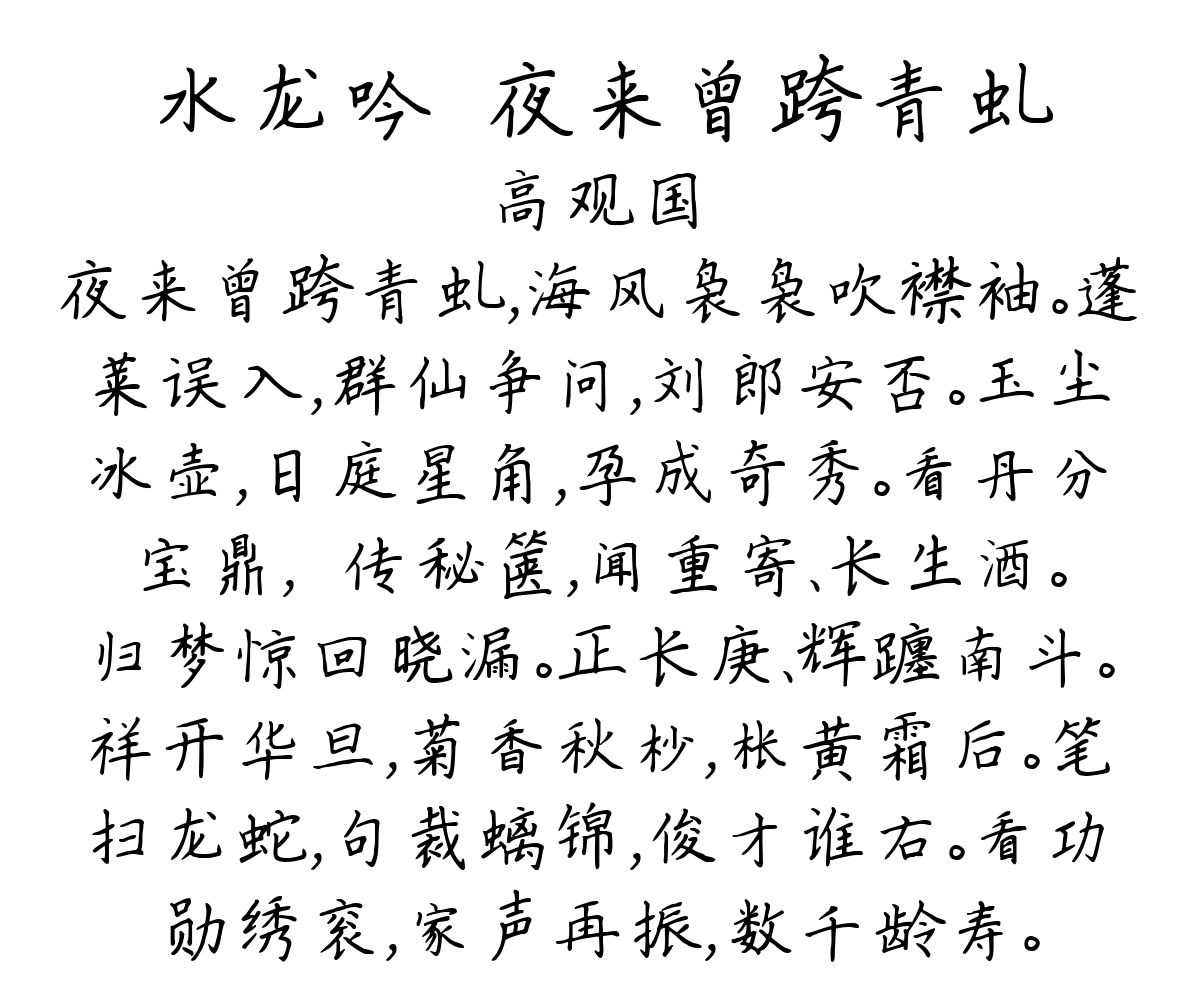 水龙吟 夜来曾跨青虬
高观国
夜来曾跨青虬,海风袅袅吹襟袖。蓬
莱误入,群仙争问,刘郎安否。玉尘
冰壶,日庭星角,孕成奇秀。看丹分
宝鼎,传秘箧,闻重寄、长生酒。
归梦惊回晓漏。正长庚、辉躔南斗。
祥开华旦,菊香秋杪,枨黄霜后。笔
扫龙蛇,句裁螭锦,俊才谁右。看功
勋绣衮,家声再振,数千龄寿。